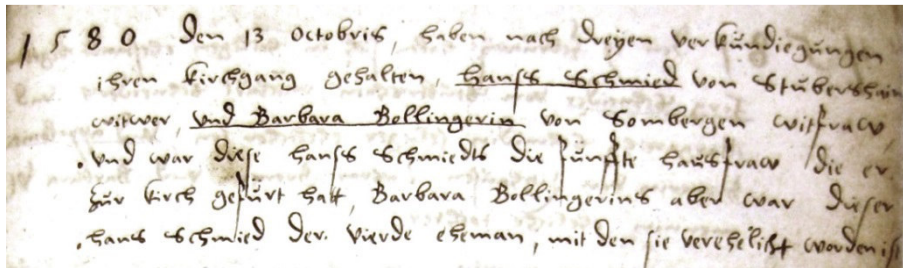 1580 den 13 Octobris, haben nach dreyen verkündiegungen
ihren kirchgang gehalten, hanß Schmied von Stubershaim
witwer, und Barbara Bollingerin von Sombergen witfraw
und war diese hanß Schmiedts die fünffte hausfraw die er
zur kirch gefürt hatt, Barbara Bollingerins aber war dieser
hans Schmied der vierde eheman, mit den sie verehelicht worden ist